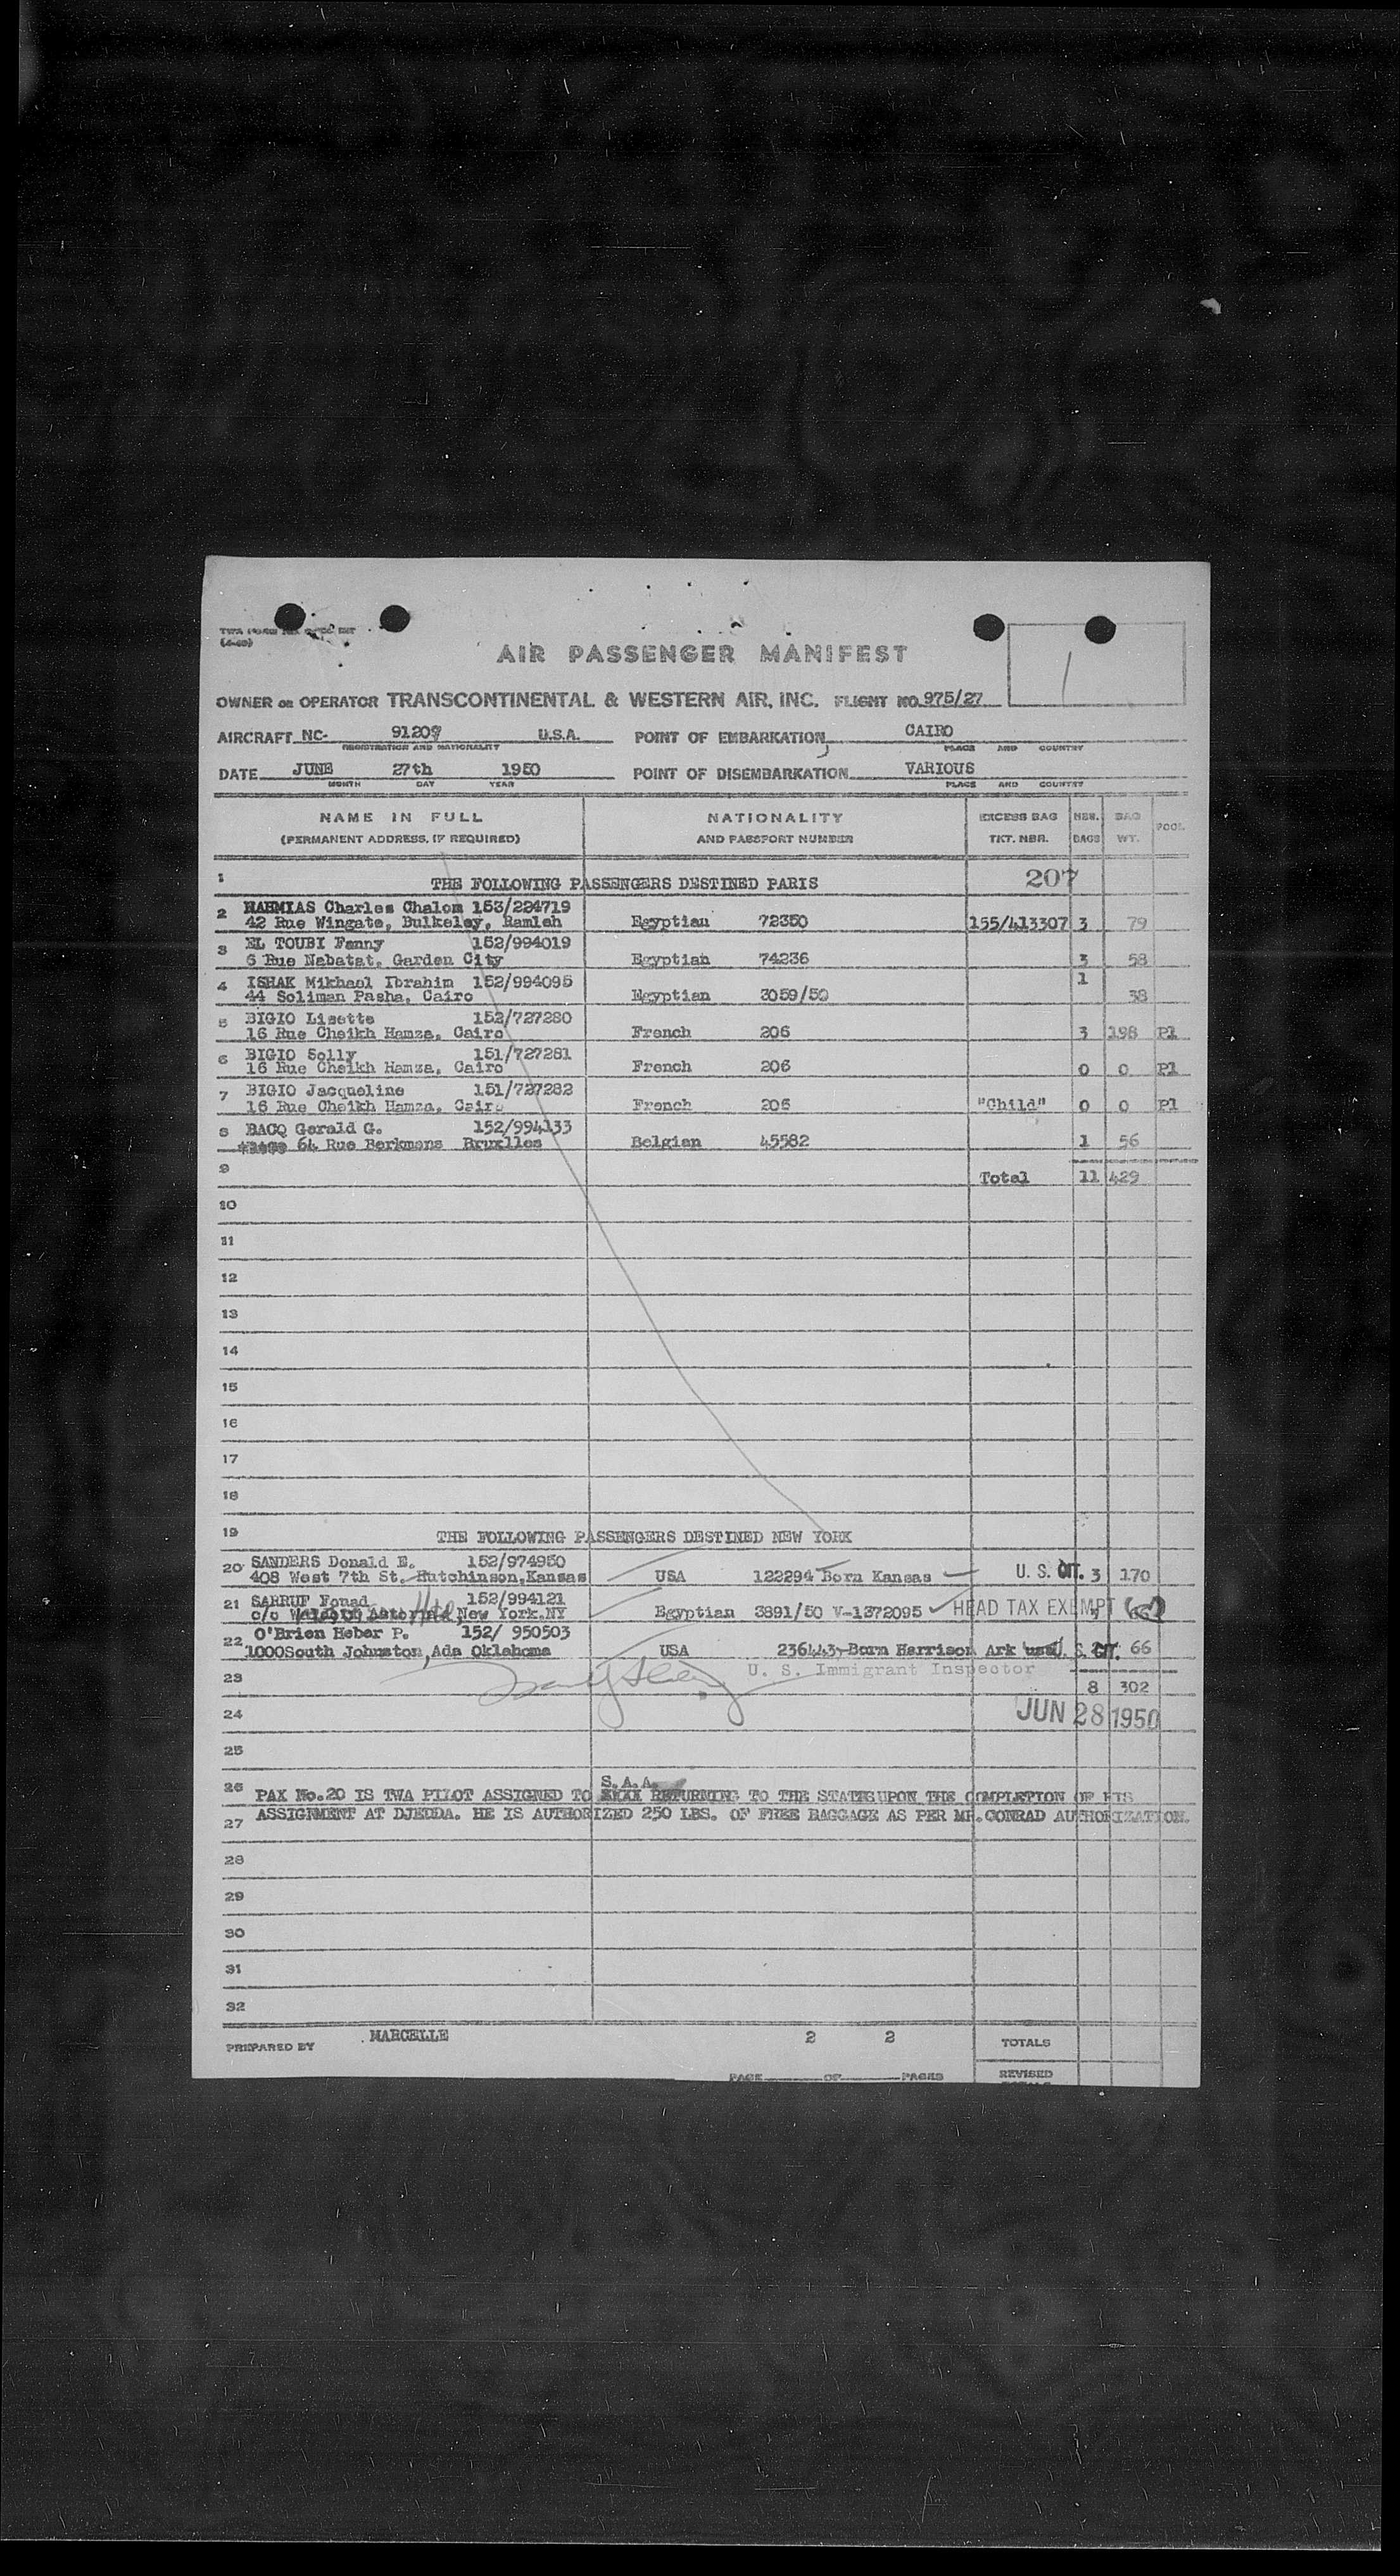 (4-49)
AIR PASSENGER MANIFEST
OWNER OR OPERATOR TRANSCONTINENTAL & WESTERN AIR, INC. FLIGHT NO. 975/27
AIRCRAFT NC- 91209 U.S.A. POINT OF EMBARKATION CAIRO
REGISTRATION AND NATIONALITY PLACE AND COUNTRY
DATE JUNE 27th 1950 POINT OF DISEMBARKATION VARIOUS
MONTH DAY YEAR PLACE AND COUNTRY
NAME IN FULL NATIONALITY EXCESS BAG NBR. BAG POOL
(PERMANENT ADDRESS, IF REQUIRED) AND PASSPORT NUMBER TKT. NBR. BAGS WT.
1 THE FOLLOWING PASSENGERS DESTINED PARIS 207
2 NAHMIAS Charles Chalom 153/224719
42 Rue Wingate, Bulkeley, Ramleh Egyptian 72350 155/413307 3 79
3 EL TOUBI Fanny 152/994019
6 Rue Nabatat, Garden City Egyptian 74236 3 58
4 ISHAK Mikhael Ibrahim 152/994095 1
44 Soliman Pasha, Cairo Egyptian 3059/50 38
5 BIGIO Lisette 152/727280
16 Rue Cheikh Hamza, Cairo French 206 3 198 P1
6 BIGIO Solly 151/727281
16 Rue Cheikh Hamza, Cairo French 206 0 0 P1
7 BIGIO Jacqueline 151/727282
16 Rue Cheikh Hamza, Cairo French 206 "Child" 0 0 P1
8 BACQ Gerald G. 152/994133
64 Rue Berkmans Bruxlles Belgian 45582 1 56
9 Total 11 429
10
11
12
13
14
15
16
17
18
19 THE FOLLOWING PASSENGERS DESTINED NEW YORK
20 SANDERS Donald E. 152/974950
408 West 7th St. Hutchinson, Kansas USA 122294 Born Kansas U. S. CIT. 3 170
21 SARRUF Fouad 152/994121
c/o Waldorf Astoria New York.NY Egyptian 3891/50 V-1372095 HEAD TAX EXEMPT
22 O'Brien Heber P. 152/ 950503
1000South Johnston, Ada Oklahoma USA 236443-Born Harrison Ark U. S. CIT. 66
23 U. S. Immigrant Inspector
8 302
24 JUN 28 1950
25
S.A.A.
26 PAX No.20 IS TWA PILOT ASSIGNED TO RETURNING TO THE STATES UPON THE COMPLETION OF HIS
27 ASSIGNMENT AT DJEDDA. HE IS AUTHORIZED 250 LBS. OF FREE BAGGAGE AS PER MR. CONRAD AUTHORIZATION.
28
29
30
31
32
PREPARED BY MARCELLE 2 2 TOTALS
PAGE OF PAGES REVISED